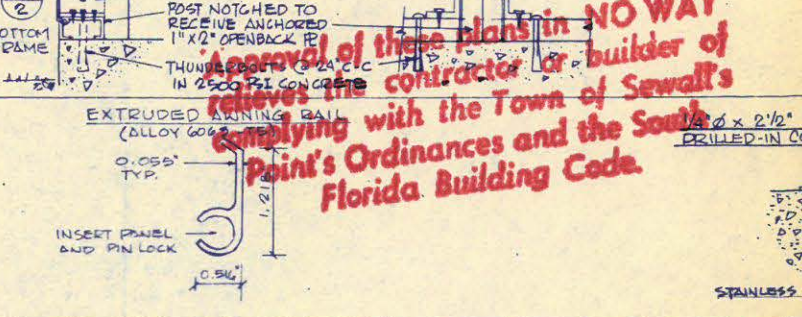 2
BOTTOM
FRAME
POST NOTCHED TO
RECEIVE ANCHORED
1"x2" OPENBACK
THUNDERBOLTS @ 24" C-C
IN 2500 PSI CONCRETE
Approval of these plans in NO WAY
relieves the contractor or builder of
complying with the Town of Sewall's
Point's Ordinances and the South
Florida Building Code.
EXTRUDED AWNING RAIL
(ALLOY 6063-T5)
0.055"
TYP.
INSERT PANEL
AND PIN LOCK
0.516"
1/4"Ø x 2 1/2"
DRILLED-IN CO
STAINLESS